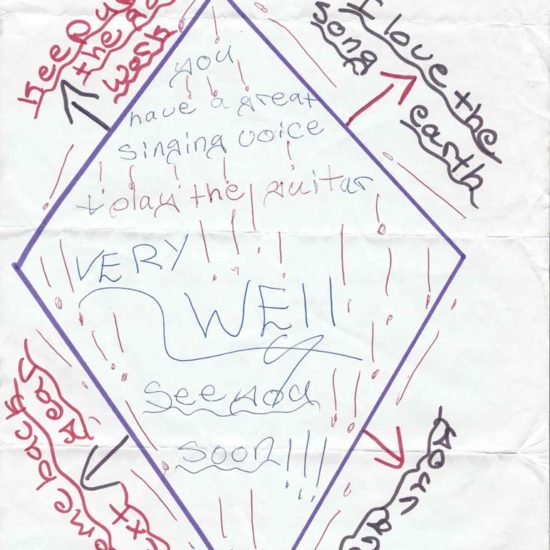 Keep
the
work
I love the
earth
song
you
have a great
singing voice
+ play the guitar
VERY
WEll
see you
soon!!!
back
year